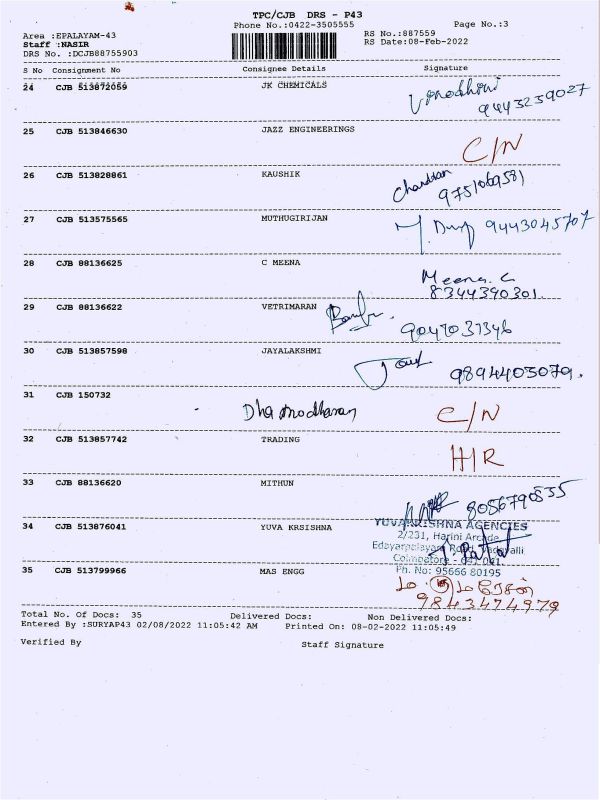 TPC/CJB DRS - P43
Phone No.:0422-3505555
Page No.:3
Area :EPALAYAM-43
Staff :NASIR
DRS No. :DCJB88755903
RS No.:887559
RS Date:08-Feb-2022
S No Consignment No Consignee Details Signature
24 CJB 513872059 JK CHEMICALS
9443239027
25 CJB 513846630 JAZZ ENGINEERINGS
C/N
26 CJB 513828861 KAUSHIK
9751069581
27 CJB 513575565 MUTHUGIRIJAN 9443045707
28 CJB 88136625 C MEENA
Meena. C
8344390301.
29 CJB 88136622 VETRIMARAN
9047037346
30 CJB 513857598 JAYALAKSHMI
9894403079.
31 CJB 150732
Dhamodharan C/N
32 CJB 513857742 TRADING
H/R
33 CJB 88136620 MITHUN
8056790835
34 CJB 513876041 YUVA KRSISHNA
YUVAKRISHNA AGENCIES
2/231, Harini Arcade,
Edayarpalayam Road, Vadavalli
Coimbatore - 641 041.
Ph. No: 95666 80195
35 CJB 513799966 MAS ENGG
9843474979
Total No. Of Docs: 35 Delivered Docs: Non Delivered Docs:
Entered By :SURYAP43 02/08/2022 11:05:42 AM Printed On: 08-02-2022 11:05:49
Verified By Staff Signature